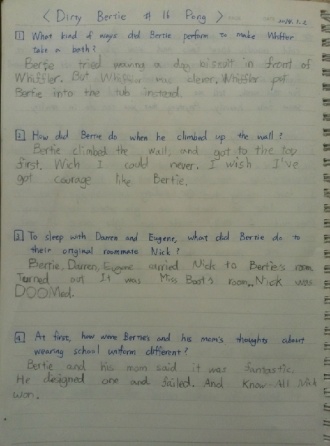 < Dirty Bertie # 16 Pong >
1 What kind of ways did Bertie perform to make Whiffler
take a bath?
Bertie tried waving a dog biscuit in front of
Whiffler. But Whiffler was clever. Whiffler put
Bertie into the tub instead.
2 How did Bertie do when he climbed up the wall?
Bertie climbed the wall, and got to the top
first. Wich I could never. I wish I've
got courage like Bertie.
3 To sleep with Darren and Eugene, what did Bertie do to
their original roommate Nick?
Bertie, Darren, Eugene carried Nick to Bertie's room.
Turned out It was Miss Boot's room. Nick was
DOOMed.
4 At first, how were Bertie's and his mom's thoughts about
wearing school uniform different?
Bertie and his mom said it was fantastic.
He designed one and failed. And Know-All Nick
won.